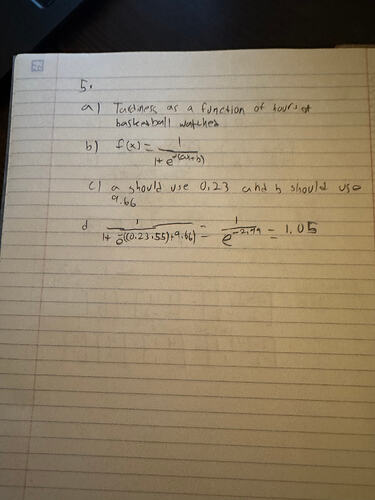 5.
a) Tardiness as a function of hours of
basketball watched
b) f(x) = 1/(1+e^-(ax+b))
c) a should use 0.23 and b should use
9.66
d 1/(1+e^-((0.23·55)+9.66)) = 1/(e^-2.99) = 1.05